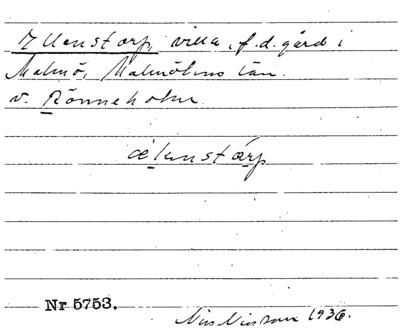 Ellenstorp, villa, f.d. gård i
Malmö, Malmöhus län.
v. Rönneholm.
Nr 5753.
Nils Nilsson 1936.